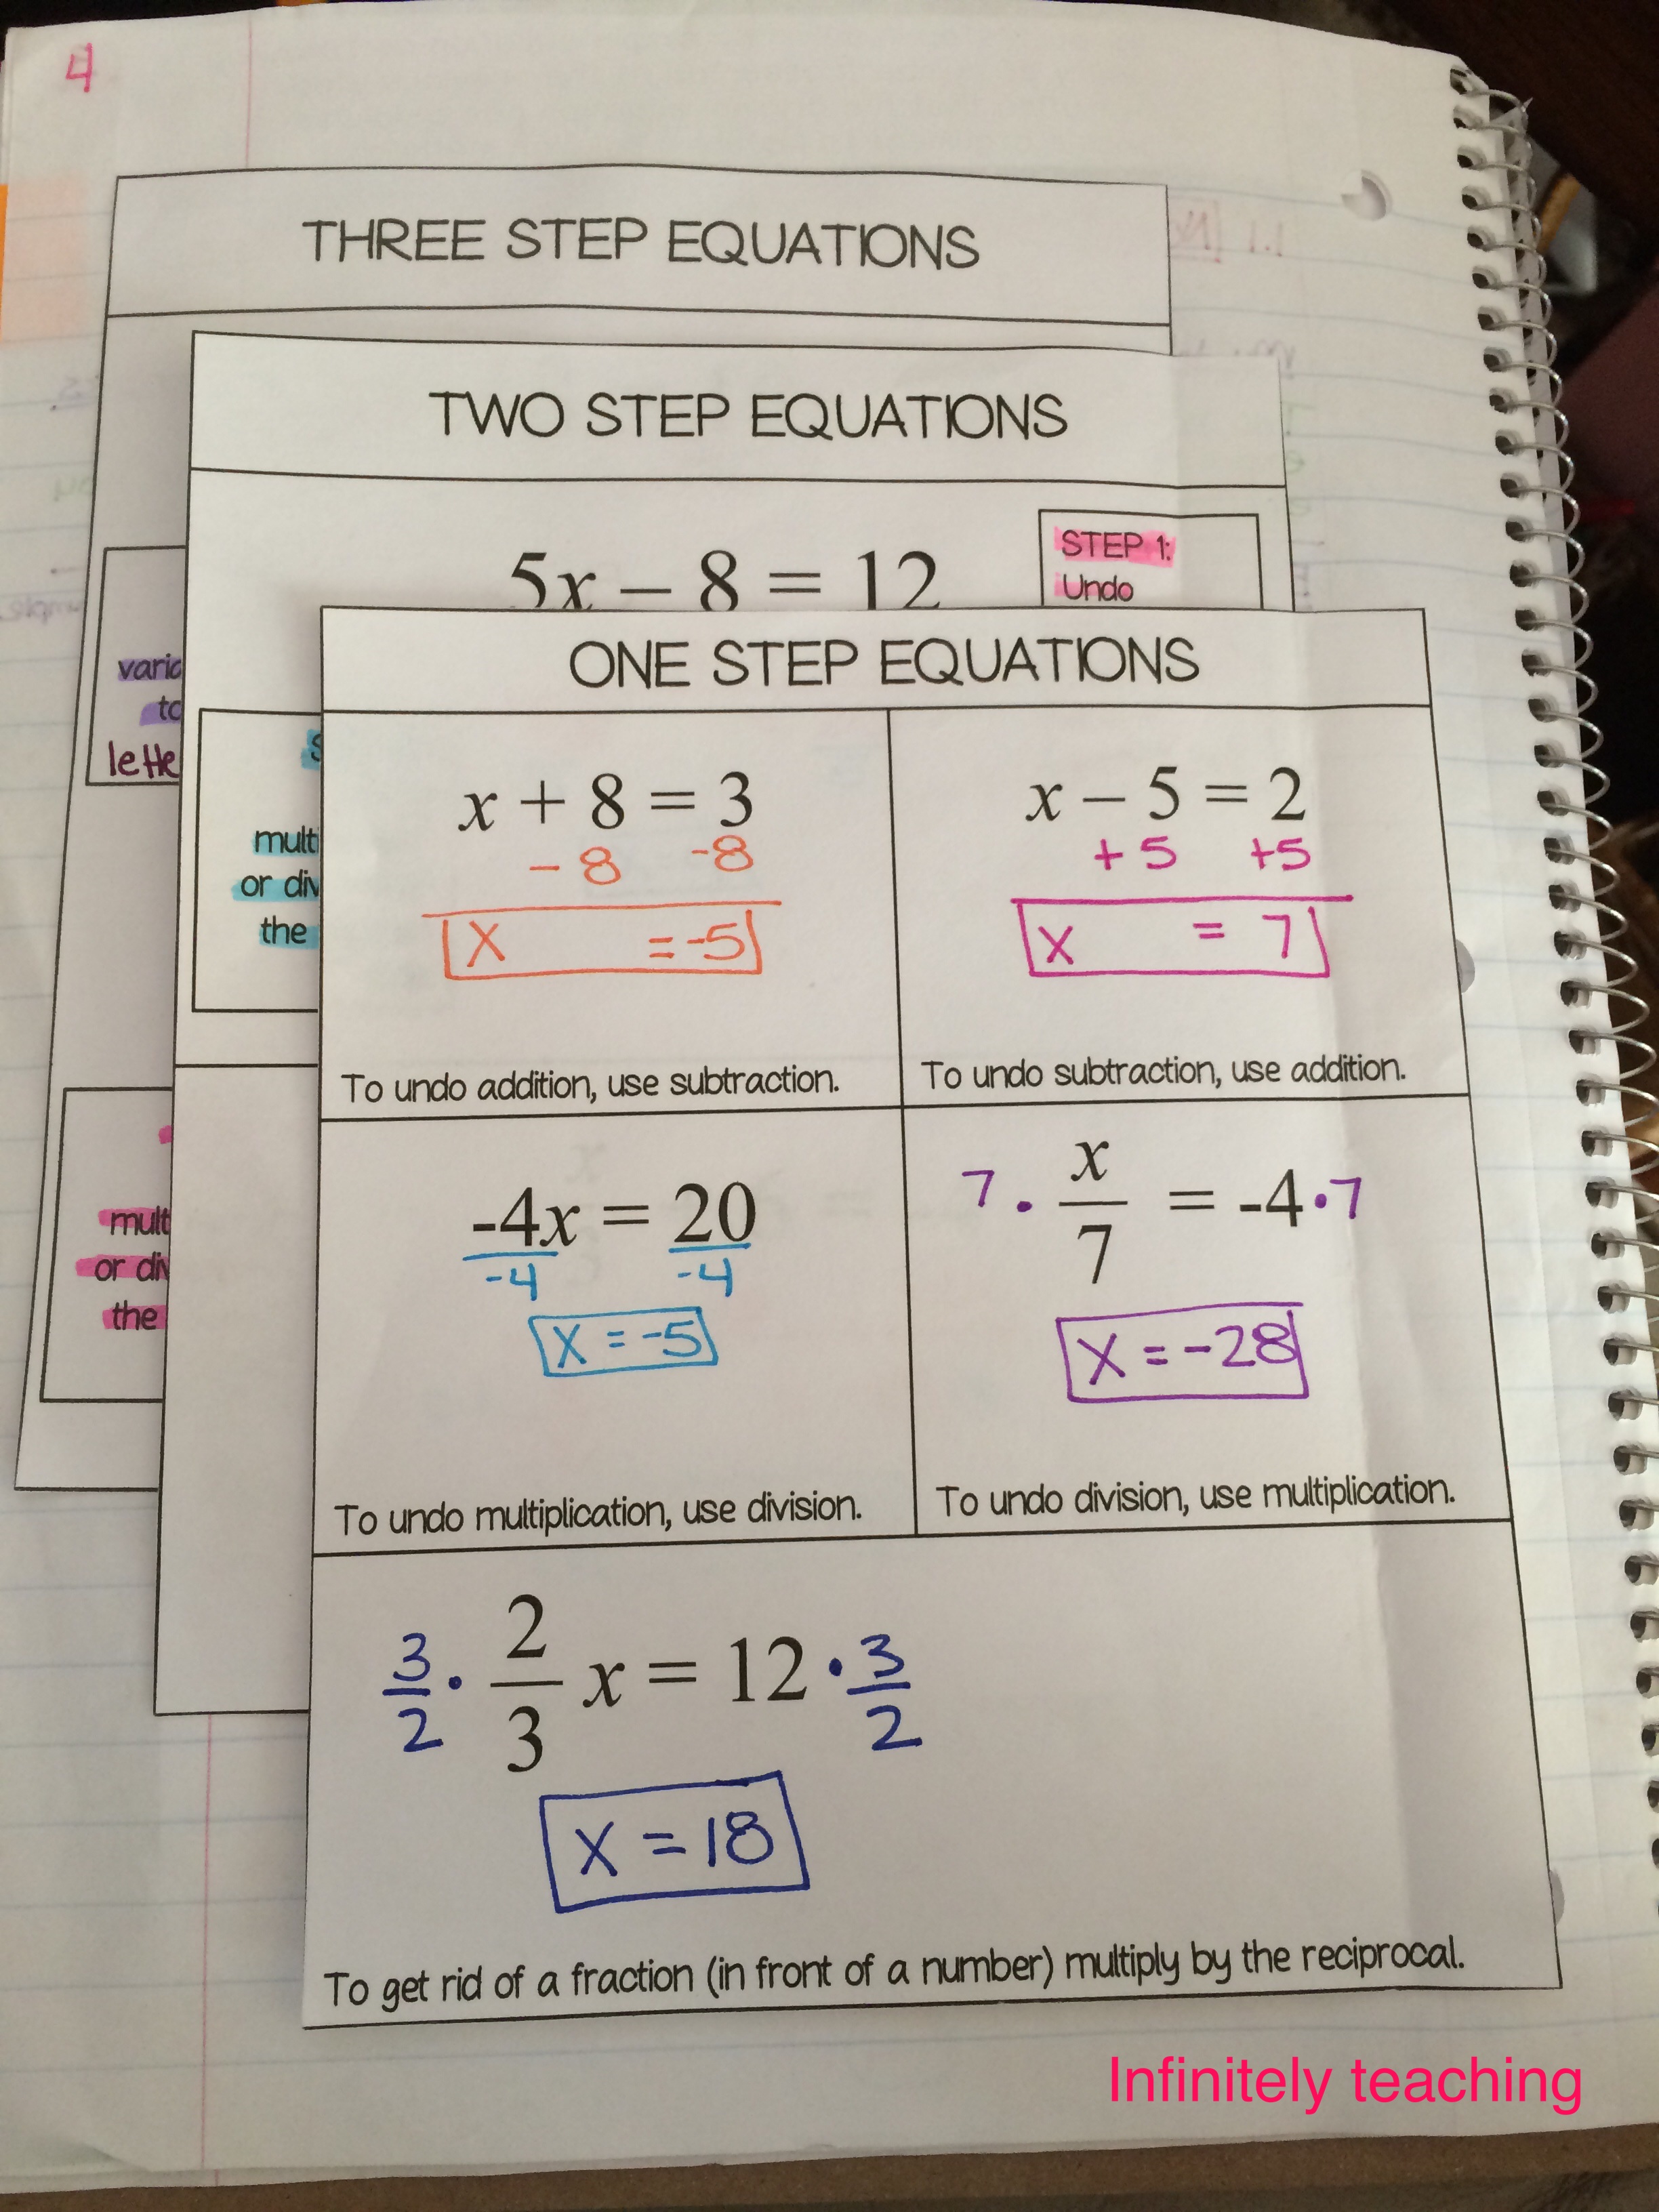 4
THREE STEP EQUATIONS
TWO STEP EQUATIONS
5x – 8 = 12
STEP 1:
Undo
to
mult
or div
the
ONE STEP EQUATIONS
x + 8 = 3
- 8 -8
x = -5
To undo addition, use subtraction.
x – 5 = 2
+ 5 +5
x = 7
To undo subtraction, use addition.
-4x = 20
-4 -4
x = -5
To undo multiplication, use division.
7 · x/7 = -4 · 7
x = -28
To undo division, use multiplication.
3/2 · 2/3 x = 12 · 3/2
x = 18
To get rid of a fraction (in front of a number) multiply by the reciprocal.
multi
or div
the
Infinitely teaching